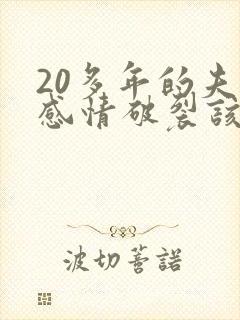 20多年的夫
感情破裂该
波切菩諾